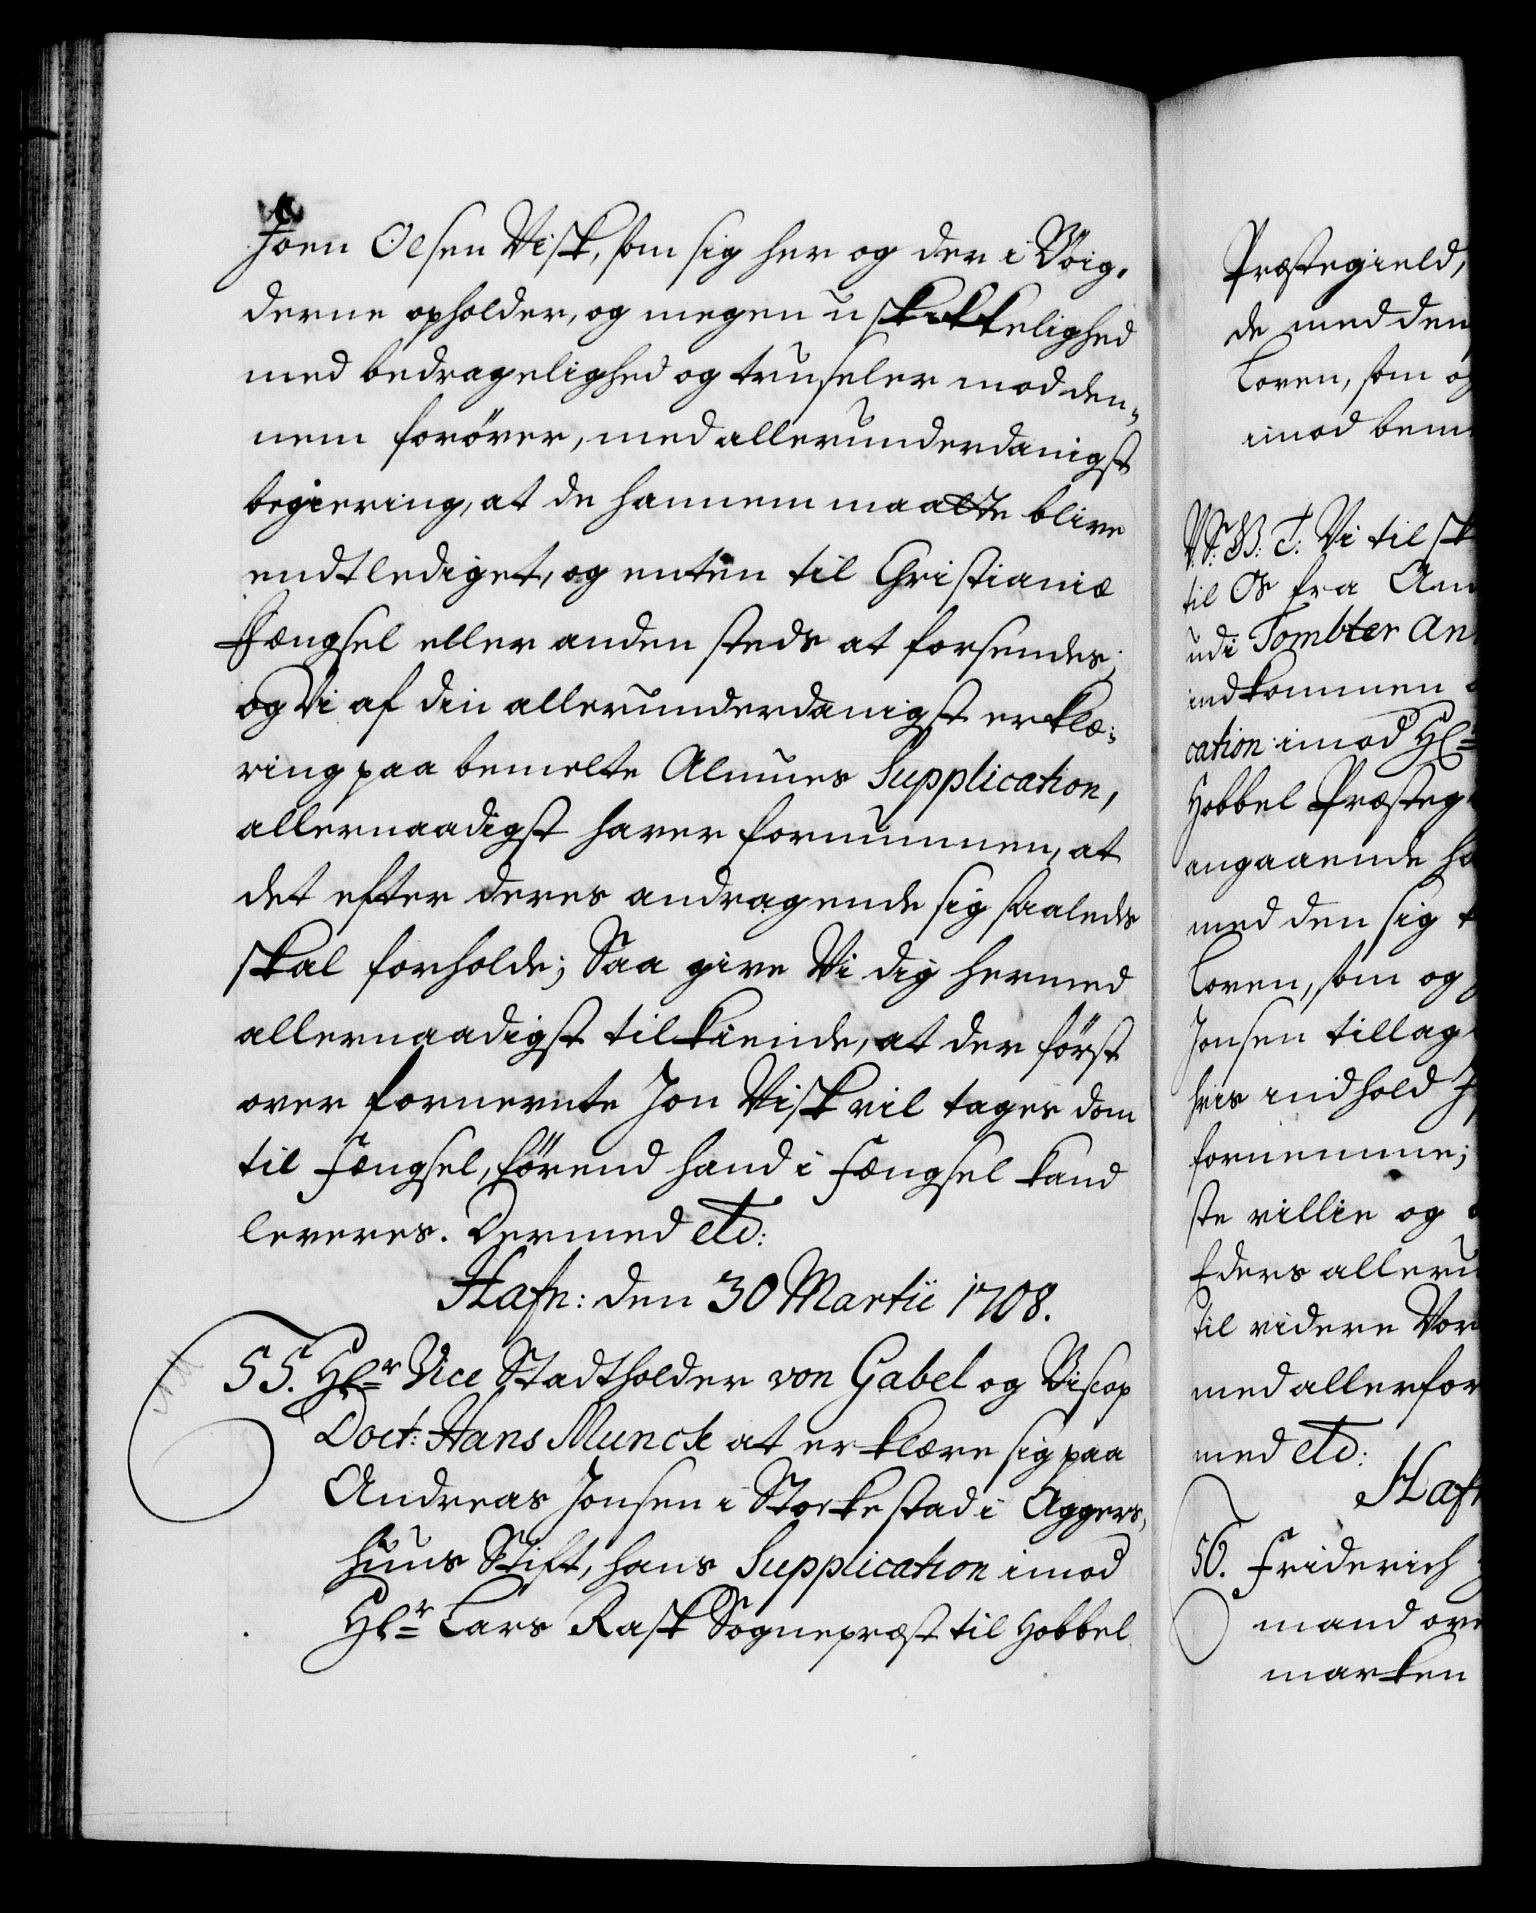 Joen Olsen Visk, som sig her og der i Böig,
derne opholder, og megen uskikkelighed
med bedragelighed og truseler mod den„
nem forøver, med allerunderdanigst
begiering, at de hannem maatte blive
endtlediget, og enten til Christianiæ
Fængsel eller anden steds at forsendes;
og Vi af din allerunderdanigst erklæ„
ring paa bemelte Almues Supplication,
allernaadigst haver fornummen, at
det efter deres andragende sig saaledes
skal forholde; Saa give Vi dig hermed
allernaadigst tilkiende, at der först
over fornevnte Jon Visk vil tages dom
til Fængsel, förend hand i Fængsel kand
leveres. Dermed etc:
Hafn: den 30 Martii 1708.
55. Hr Vice Stadtholder von Gabel og Biscop
Doct: Hans Munch at erklære sig paa
Andreas Jonsen i Storkestad i Aggers,
huus Stift, hans Supplication imod
Hr Lars Rask Sognepræst til Hobbel
Præstegield,
de med den
Loven, som og
imod bem
V. S. B: T: Vi til sk
til Os fra An
udi Tombter An
indkommen
cation imod Hr
Hobbel Præsteg
angaaende ha
med den sig t
Loven, som og
Jonsen tillag
hvis indhold J
fornemme;
ste villie og
Eders alleru
til videre Vor
med allerfor
med etc:
Hafn
56. Friderich
mand ove
marken